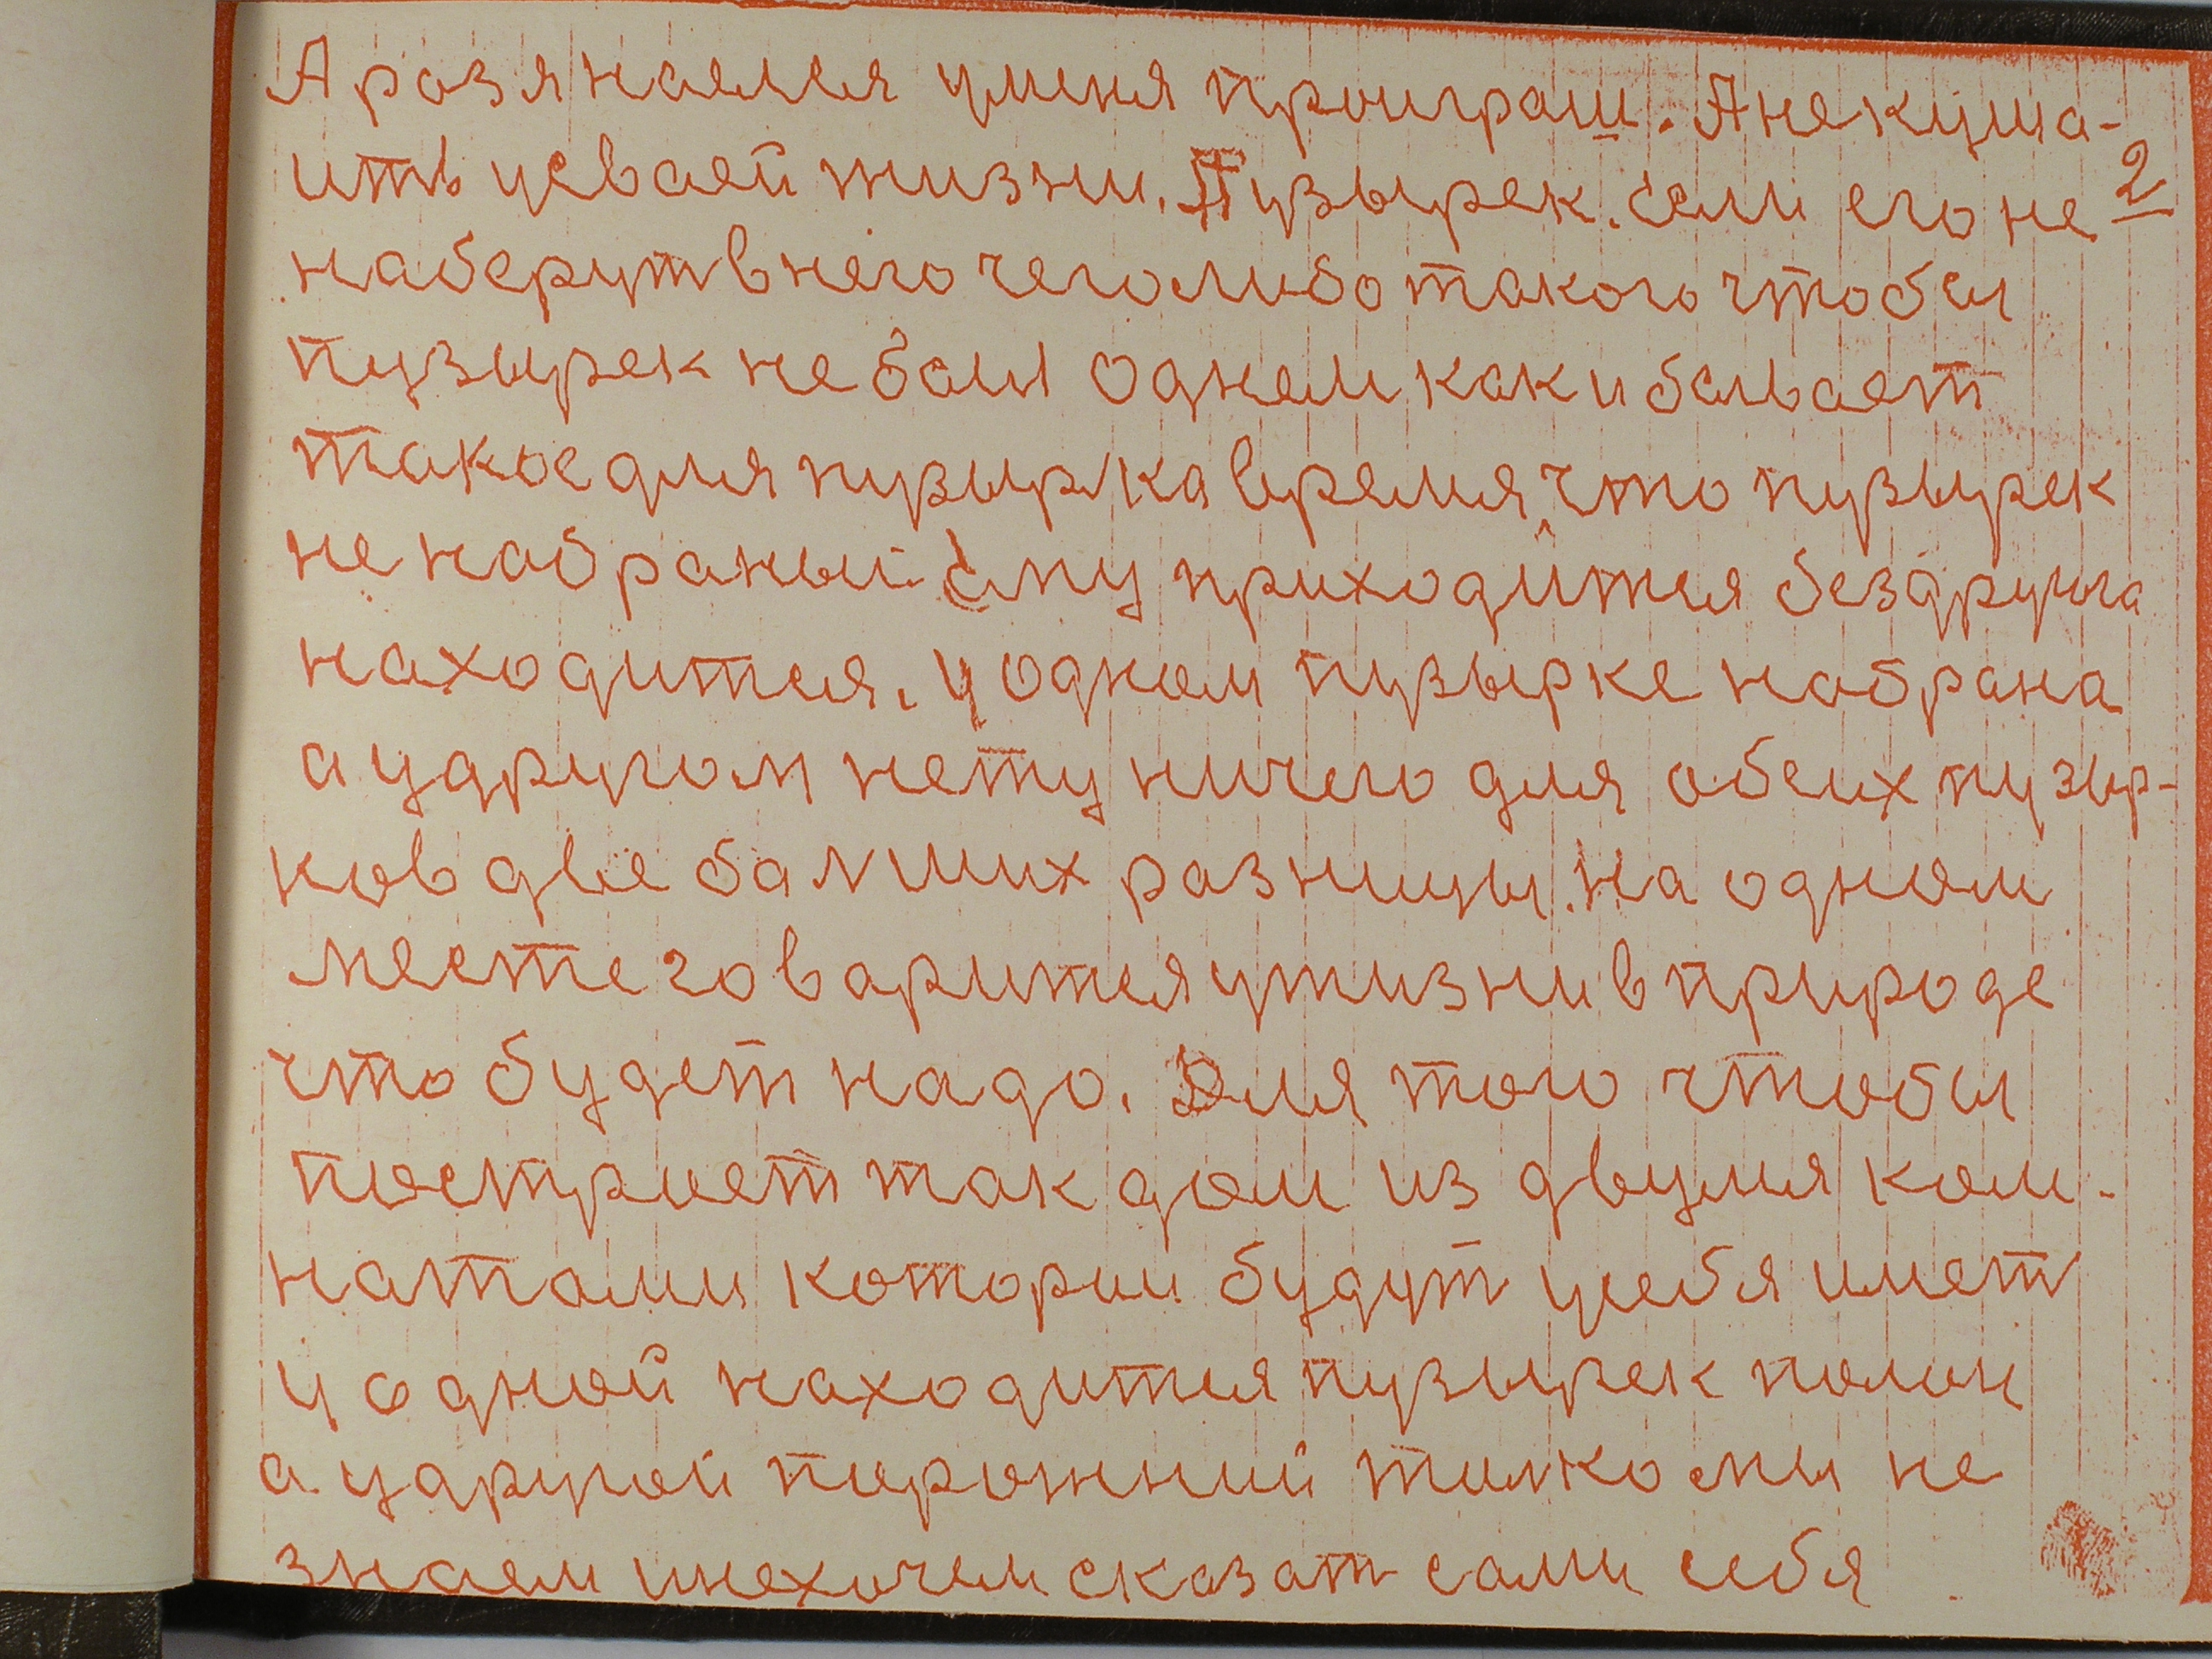 А раз я наелся уменя проиграш. А не куша-
ить усваей жизни. Пузырек. если его не
2
наберут в него чего либо такого чтобы
пузырек не был одним как и бывает
такое для пузырка время, что пузырек
не набраный ему приходится без друга
находится. у одном пузырке набрана
а у другом нету ничего для обеих пузыр-
ков две балших разницы. На одном
месте говарится ужизни в природе
что будет надо. Для того чтобы
построет так дом из двумя ком-
натами которыи будут усебя имет
у одной находится пузырек полон
а у другой порожний толко мы не
знаем и не хочем сказат сами себя